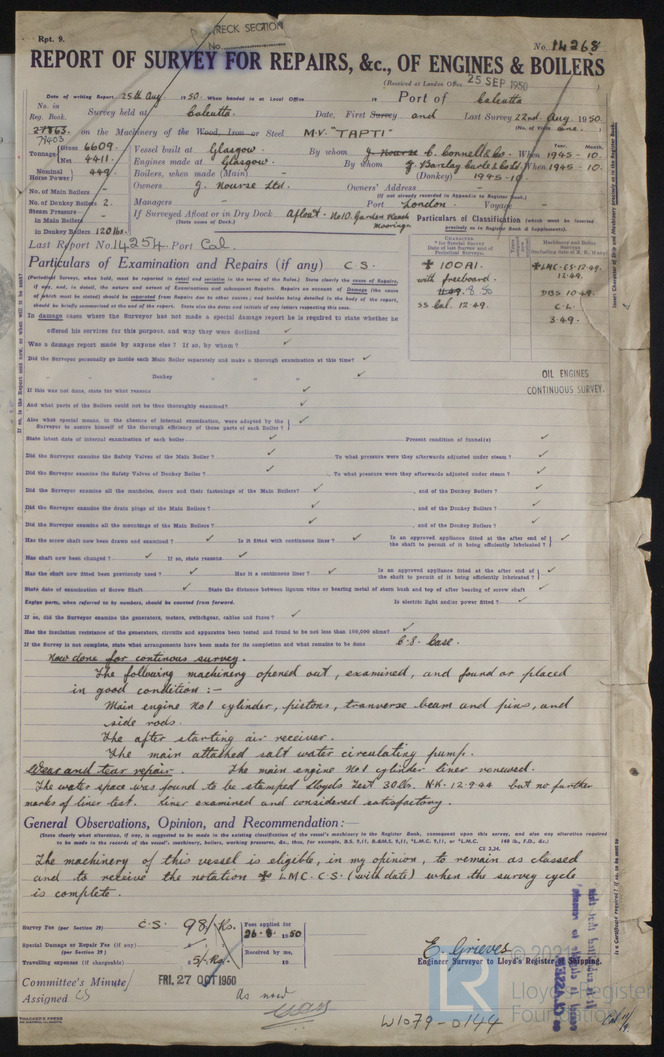 Rpt. 9.
WRECK SECTION
No.
No. 14268
REPORT OF SURVEY FOR REPAIRS, &c., OF ENGINES & BOILERS
(Received at London Office 25 SEP 1950)
Date of writing Report 25th Aug. 1950. When handed in at Local Office 19 Port of Calcutta
No. in Reg. Book. Survey held at Calcutta. Date, First Survey and Last Survey 22nd Aug. 1950.
27863. on the Machinery of the Wood, Iron or Steel M.V. "TAPTI" (No. of Visits One.)
79403
Tonnage Gross 6609 Vessel built at Glasgow By whom J. Nourse C. Connell & Co. When 1945 - 10.
Net 4411. Engines made at Glasgow. By whom J. Barclay Curle & Co Ld When 1945 - 10.
Nominal Horse Power 449. Boilers, when made (Main) (Donkey) 1945-10
No. of Main Boilers Owners J. Nourse Ltd. Owners' Address
(if not already recorded in Appendix to Register Book.)
No. of Donkey Boilers 2. Managers Port London. Voyage
Steam Pressure in Main Boilers If Surveyed Afloat or in Dry Dock Afloat. No10. Garden Reach Moorings
(State name of Dock.)
in Donkey Boilers 120 lbs.
Last Report No. 14254 Port Cal.
Particulars of Classification (which must be inserted precisely as in Register Book & Supplements).
Particulars of Examination and Repairs (if any) C S.
CHARACTER
* for Special Survey
Date of last Survey and of Periodical Surveys.
Machinery and Boiler Surveys
(including date of N.B., if any)
✠ 100A1. ✠LMC-CS-12.49.
with freeboard 12.49.
11.49. 8.50 DBS 10.49.
SS Cal. 12.49. C.L.
3.49.
OIL ENGINES
CONTINUOUS SURVEY.
In damage cases where the Surveyor has not made a special damage report he is required to state whether he
offered his services for this purpose, and why they were declined ✓
Was a damage report made by anyone else? If so, by whom? ✓
Did the Surveyor personally go inside each Main Boiler separately and make a thorough examination at this time? ✓
" " Donkey " " " " ✓
If this was not done, state for what reasons ✓
And what parts of the Boilers could not be thus thoroughly examined? ✓
Also what special means, in the absence of internal examination, were adopted by the
Surveyor to assure himself of the thorough efficiency of those parts of each Boiler? ✓
State latest date of internal examination of each boiler ✓ Present condition of funnel(s) ✓
Did the Surveyor examine the Safety Valves of the Main Boiler? ✓ To what pressure were they afterwards adjusted under steam? ✓
Did the Surveyor examine the Safety Valves of Donkey Boiler? ✓ To what pressure were they afterwards adjusted under steam? ✓
Did the Surveyor examine all the manholes, doors and their fastenings of the Main Boilers? ✓ , and of the Donkey Boilers? ✓
Did the Surveyor examine the drain plugs of the Main Boilers? ✓ , and of the Donkey Boilers? ✓
Did the Surveyor examine all the mountings of the Main Boilers? ✓ , and of the Donkey Boilers? ✓
Has the screw shaft now been drawn and examined? ✓ Is it fitted with continuous liner? ✓ Is an approved appliance fitted at the after end of the shaft to permit of it being efficiently lubricated? ✓
Has shaft now been changed? ✓ If so, state reasons ✓
Has the shaft now fitted been previously used? ✓ Has it a continuous liner? ✓ Is an approved appliance fitted at the after end of the shaft to permit of it being efficiently lubricated? ✓
State date of examination of Screw Shaft ✓ State the distance between lignum vitæ or bearing metal of stern bush and top of after bearing of screw shaft ✓
Engine parts, when referred to by numbers, should be counted from forward. Is electric light and/or power fitted? ✓
If so, did the Surveyor examine the generators, motors, switchgear, cables and fuses? ✓
Has the insulation resistance of the generators, circuits and apparatus been tested and found to be not less than 100,000 ohms? ✓
If the Survey is not complete, state what arrangements have been made for its completion and what remains to be done C.S. Case.
Now done for continous survey.
The following machinery opened out, examined, and found or placed
in good condition :-
Main engine No1 cylinder, pistons, tranverse beam and pins, and
side rods.
The after starting air receiver.
The main attached salt water circulating pump.
Wear and tear repair. The main engine No1 cylinder liner renewed.
The water space was found to be stamped Lloyds Test 30lbs. N.K. 12-9-44 but no further
marks of liner test. Liner examined and considered satisfactory.
General Observations, Opinion, and Recommendation:—
(State clearly what alteration, if any, is suggested to be made in the existing classification of the vessel's machinery in the Register Book, consequent upon this survey, and also any alteration required
to be made in the records of the vessel's machinery, boilers, working pressures, &c., thus, for example, B.S. 9,11, B.&M.S. 9,11, *L.M.C. 9,11, or *L.M.C. 140 lb., F.D., &c.)
CS 3,34.
The machinery of this vessel is eligible, in my opinion, to remain as classed
and to receive the notation ✠ LMC. C.S. (with date) when the survey cycle
is complete.
Survey Fee (per Section 29) C.S. 98/- Rs. Fees applied for
26-8-1950
Special Damage or Repair Fee (if any) (per Section 29) Received by me,
Travelling expenses (if chargeable) 5/- Rs. 19
E. Grieves
Engineer Surveyor to Lloyd's Register of Shipping.
Committee's Minute FRI. 27 OCT 1950
Assigned CS As now
THACKER'S PRESS
© 2021
LR
Lloyd's Register
Foundation
W1079-0144